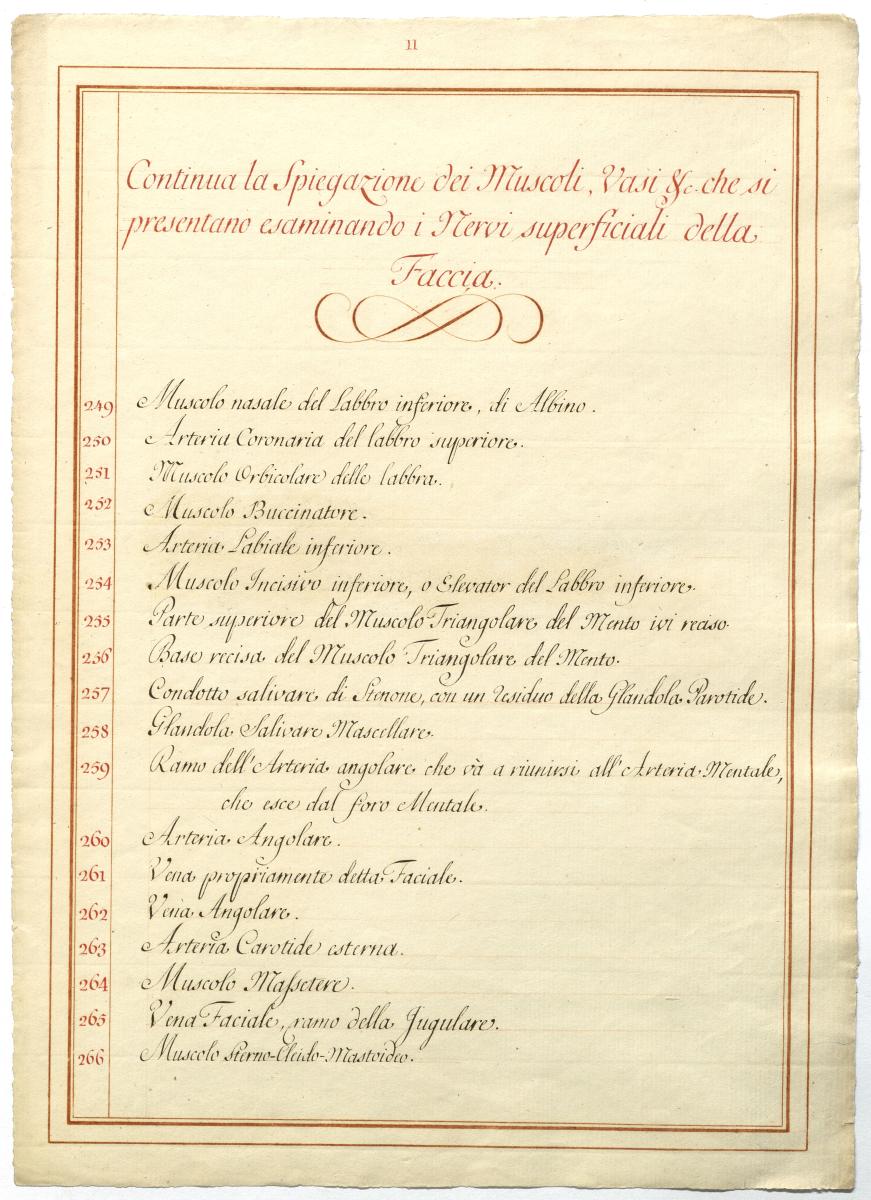 11
Continua la Spiegazione dei Muscoli, Vasi &c. che si
presentano esaminando i Nervi superficiali della
Faccia.
249 Muscolo nasale del Labbro inferiore, di Albino.
250 Arteria Coronaria del labbro superiore.
251 Muscolo Orbicolare delle labbra.
252 Muscolo Buccinatore.
253 Arteria Labiale inferiore.
254 Muscolo Incisivo inferiore, o Elevator del Labbro inferiore.
255 Parte superiore del Muscolo Triangolare del Mento ivi reciso.
256 Base recisa del Muscolo Triangolare del Mento.
257 Condotto salivare di Stenone, con un residuo della Glandola Parotide.
258 Glandola Salivare Mascellare.
259 Ramo dell'Arteria angolare che và a riunirsi all'Arteria Mentale,
che esce dal foro Mentale.
260 Arteria Angolare.
261 Vena propriamente detta Faciale.
262 Vena Angolare.
263 Arteria Carotide esterna.
264 Muscolo Maſsetere.
265 Vena Faciale, ramo della Jugulare.
266 Muscolo Sterno-Cleido-Mastoideo.